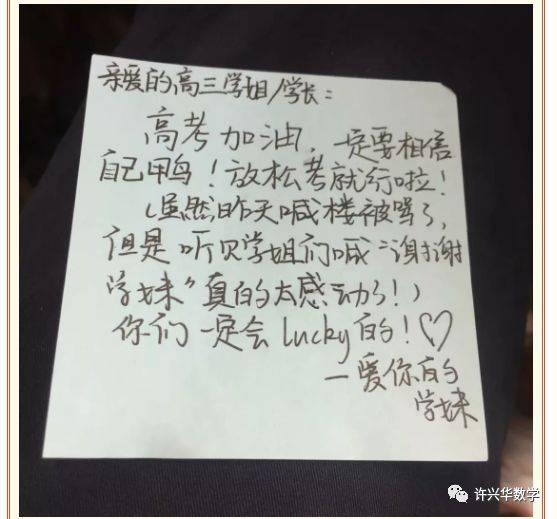 亲爱的高三学姐/学长：
高考加油，一定要相信
自己鸭！放松考就行啦！
（虽然昨天喊楼被骂了，
但是听见学姐们喊“谢谢
学妹”真的太感动了！）
你们一定会lucky的！♡
—爱你的
学妹
许兴华数学